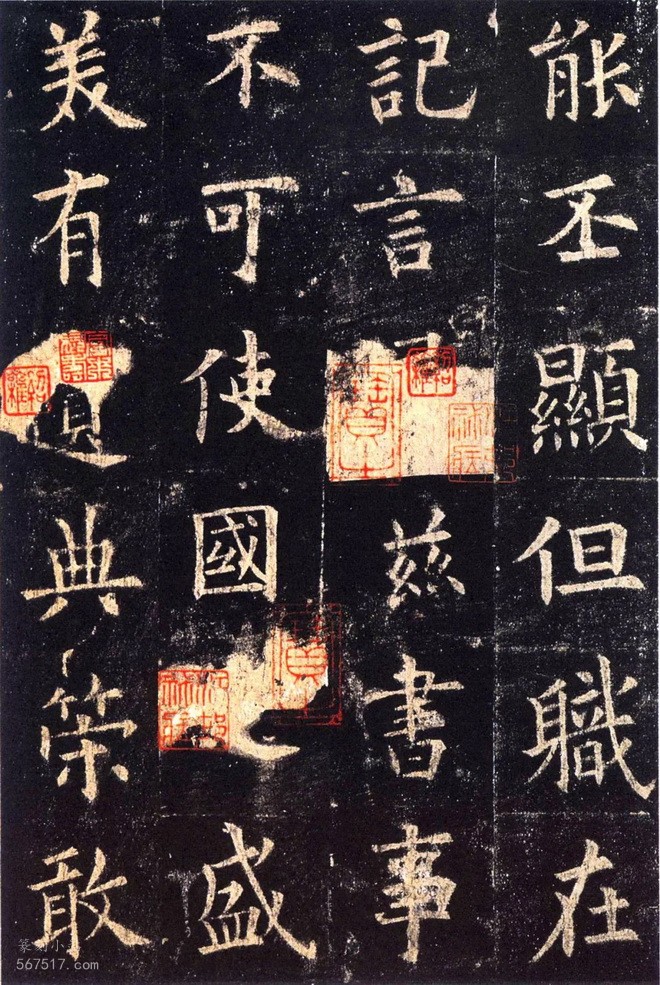 能丕顯但職在
記言兹書事
不可使國盛
美有遺典策敢
567517.com